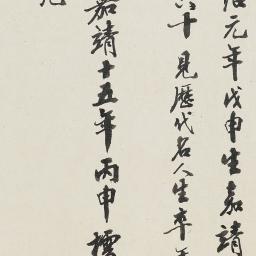 治元年戊申生嘉靖
六十 見歷代名人生卒年
嘉靖十五年丙申